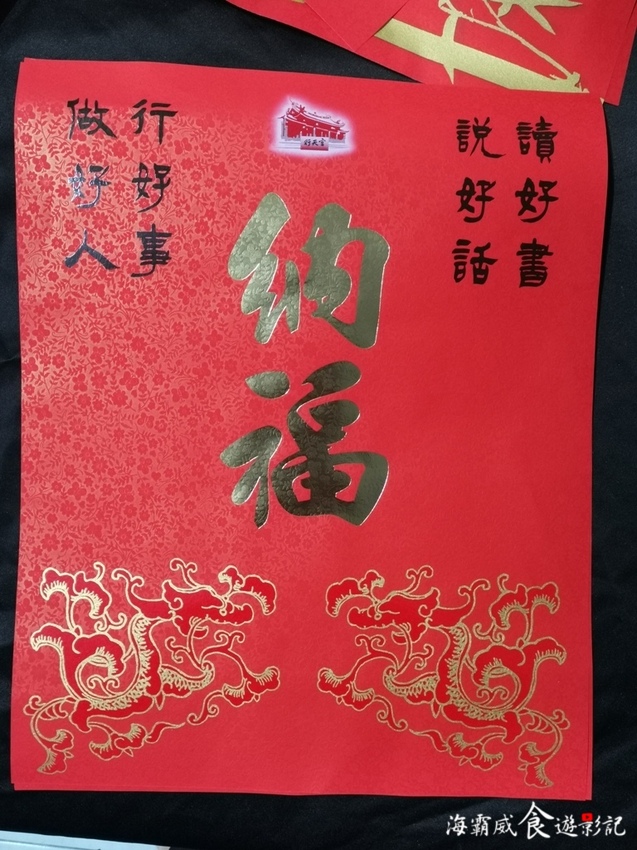 讀好書
說好話
行好事
做好人
行天宮
納福
海霸威食遊影記